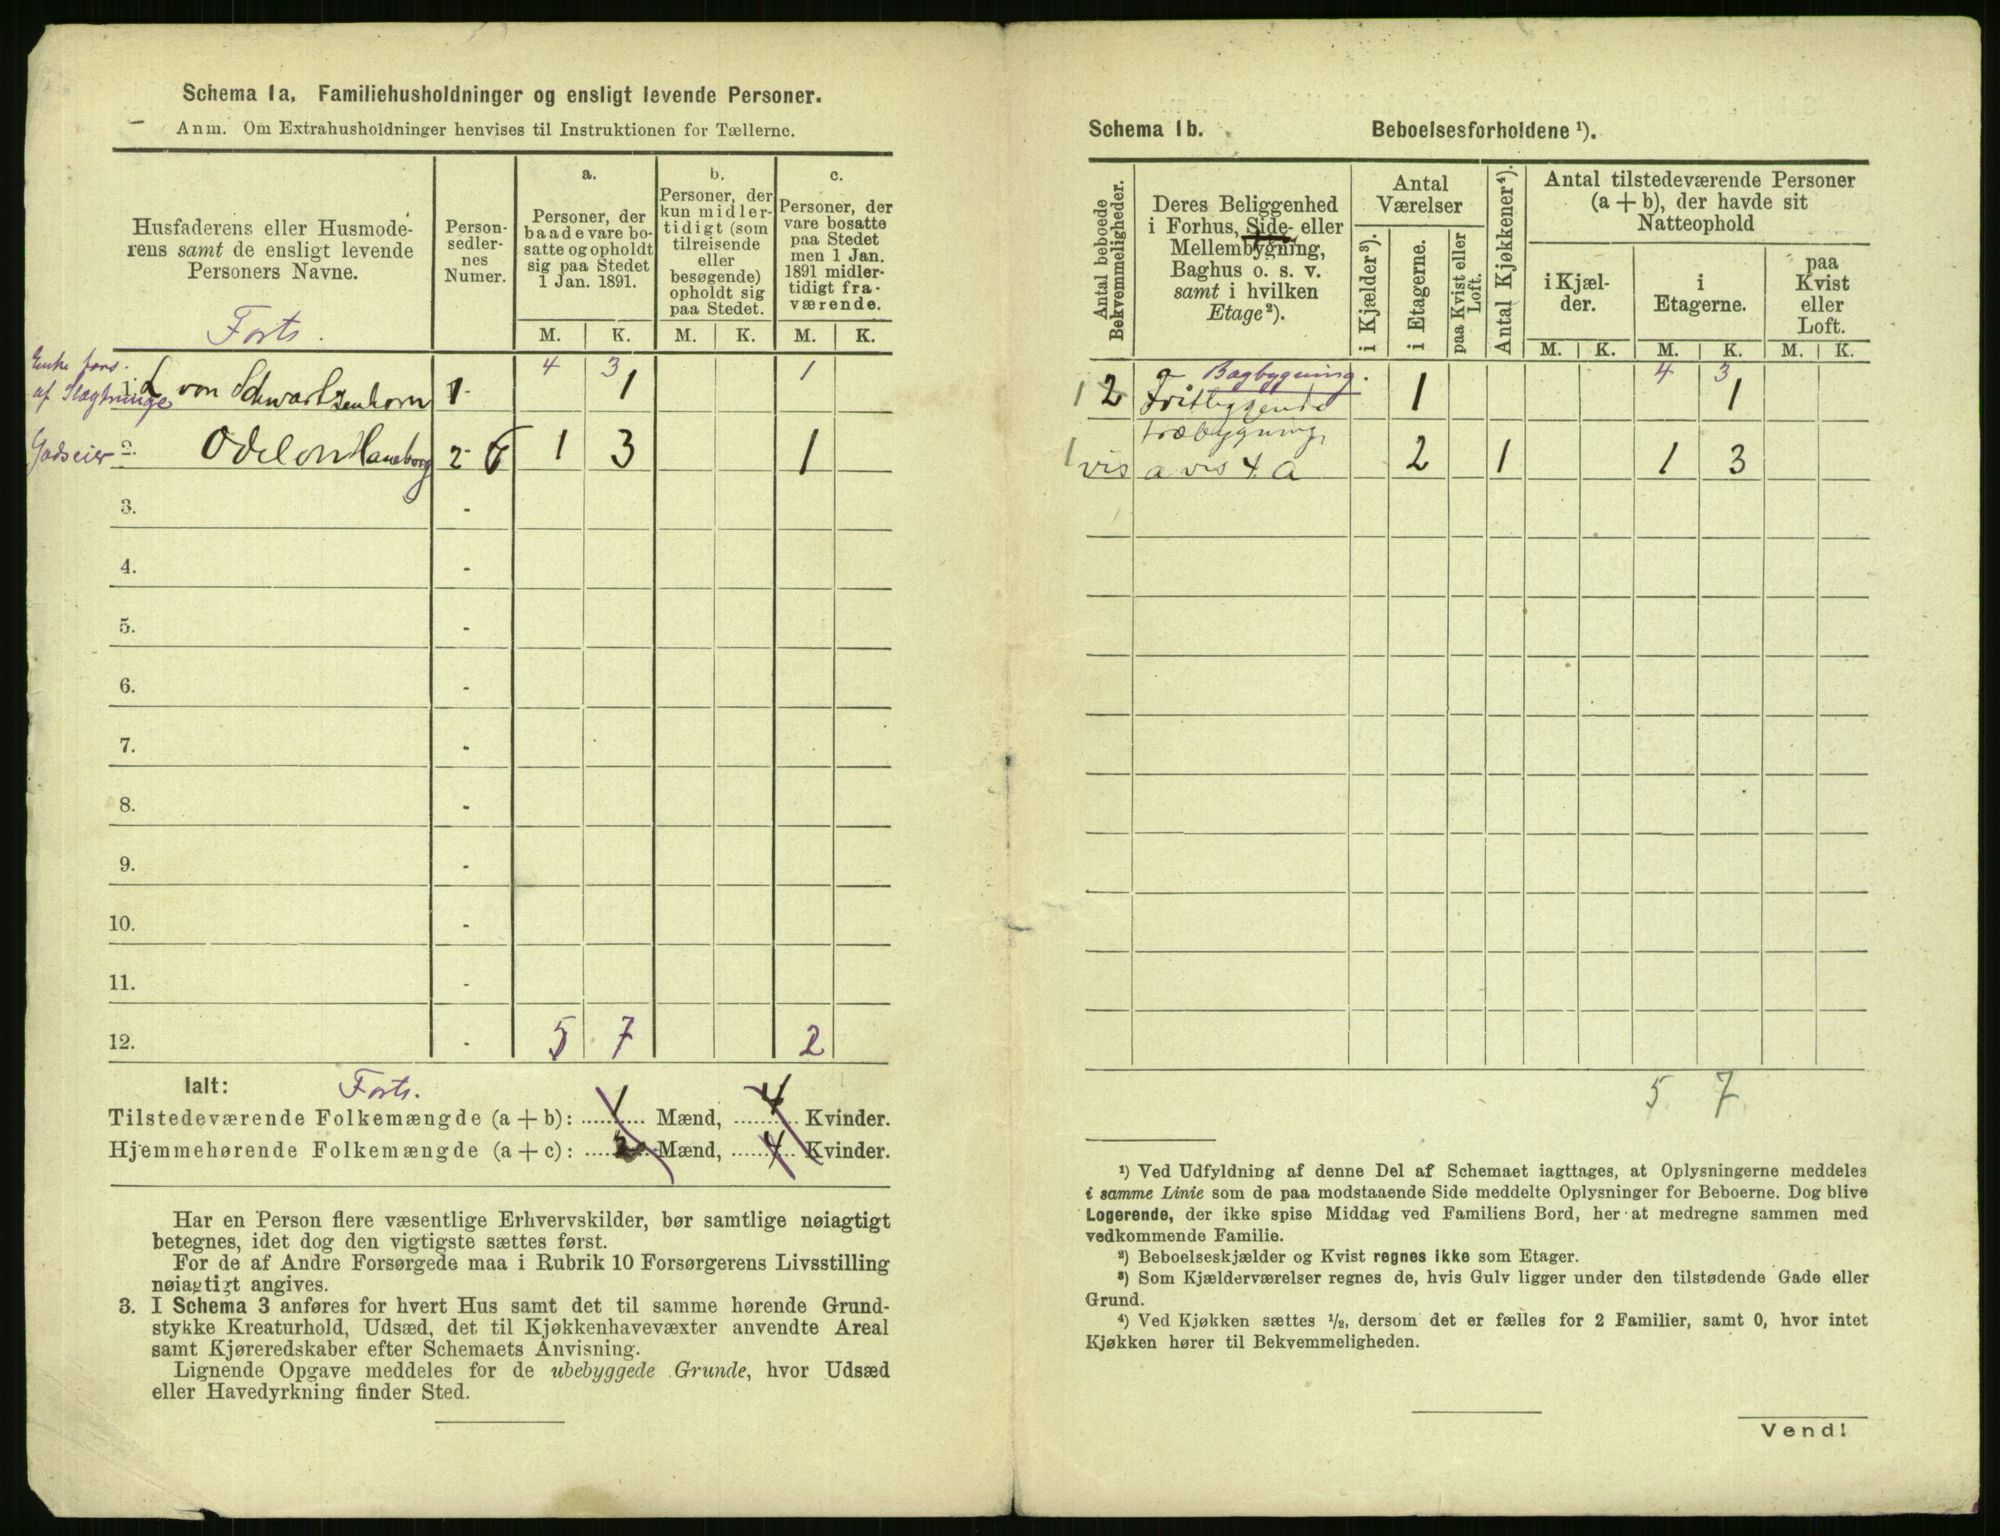 Schema 1a. Familiehusholdninger og ensligt levende Personer.
Anm. Om Extrahusholdninger henvises til Instruktionen for Tællerne.
Husfaderens eller Husmode-
rens samt de ensligt levende
Personers Navne.
Forts.
Person-
sedler-
nes
Numer.
a.
Personer, der
baade vare bo-
satte og opholdt
sig paa Stedet
1 Jan. 1891.
b.
Personer, der
kun midler-
tidigt (som
tilreisende
eller
besøgende)
opholdt sig
paa Stedet.
c.
Personer, der
vare bosatte
paa Stedet
men 1 Jan.
1891 midler-
tidigt fra-
værende.
M. K. M. K. M. K.
4 3 1
Enke fors.
af Slægtninge
1. L von Schwartzenhorn 1 - 1
Godseier 2. Odelon Haneborg 2 - 1 3 1
3. -
4. -
5. -
6. -
7. -
8. -
9. -
10. -
11. -
12. - 5 7 2
Ialt: Forts.
Tilstedeværende Folkemængde (a + b): 1 Mænd, 4 Kvinder.
Hjemmehørende Folkemængde (a + c): 2 Mænd, 4 Kvinder.
Har en Person flere væsentlige Erhvervskilder, bør samtlige nøiagtigt
betegnes, idet dog den vigtigste sættes først.
For de af Andre Forsørgede maa i Rubrik 10 Forsørgerens Livsstilling
nøiagtigt angives.
3. I Schema 3 anføres for hvert Hus samt det til samme hørende Grund-
stykke Kreaturhold, Udsæd, det til Kjøkkenhavevæxter anvendte Areal
samt Kjøreredskaber efter Schemaets Anvisning.
Lignende Opgave meddeles for de ubebyggede Grunde, hvor Udsæd
eller Havedyrkning finder Sted.
Schema 1b. Beboelsesforholdene ¹).
Antal beboede
Bekvemmeligheder.
Deres Beliggenhed
i Forhus, Side- eller
Mellembygning,
Baghus o. s. v.
samt i hvilken
Etage²).
Antal
Værelser
i Kjælder³).
i Etagerne.
paa Kvist eller
Loft.
Antal Kjøkkener⁴).
Antal tilstedeværende Personer
(a + b), der havde sit
Natteophold
i Kjæl-
der.
i
Etagerne.
paa
Kvist
eller
Loft.
M. K. M. K. M. K.
Bagbygning. 4 3
1 2 Fritliggende 1 1
træbygning
1 vis a vis 4 A 2 1 1 3
5 7
¹) Ved Udfyldning af denne Del af Schemaet iagttages, at Oplysningerne meddeles
i samme Linie som de paa modstaaende Side meddelte Oplysninger for Beboerne. Dog blive
Logerende, der ikke spise Middag ved Familiens Bord, her at medregne sammen med
vedkommende Familie.
²) Beboelseskjælder og Kvist regnes ikke som Etager.
³) Som Kjælderværelser regnes de, hvis Gulv ligger under den tilstødende Gade eller
Grund.
⁴) Ved Kjøkken sættes ½, dersom det er fælles for 2 Familier, samt 0, hvor intet
Kjøkken hører til Bekvemmeligheden.
Vend!